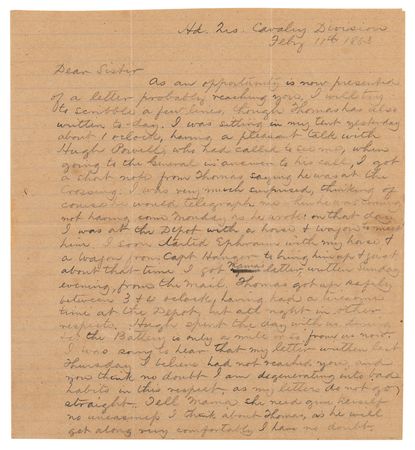 Hd. Qrs. Cavalry Division
Feby 11th 1863
Dear Sister
As an opportunity is now presented
of a letter probably reaching you, I will try
to scribble a few lines, though Thomas has also
written to day. I was sitting in my tent yesterday
about 1 o'clock, having a pleasant talk with
Hugh Powell, who had called to see me, when
going to the General in answer to his call, I got
a short note from Thomas saying he was at the
crossing. I was very much surprised, thinking of
course he would telegraph me when he was coming
not having come Monday as he wrote: on that day
I was at the Depot with a horse & wagon to meet
him. I soon started Ephraim with my horse &
a wagon from Capt to bring him up & just
about that time I got Mama's letter, written Sunday
evening, from the mail. Thomas got up safely
between 3 & 4 o'clock, having had a
time at the Depot, but all right in other
respects. Hugh spent the day with us
the Battery is only a mile or so from us now.
I was sorry to hear that my letter written last
Thursday I believe had not reached you, and
you think no doubt I am degenerating into bad
habits in this respect, as my letters do not go
straight. Tell Mama she need give herself
no uneasiness I think about Thomas, as he will
get along very comfortably I have no doubt.